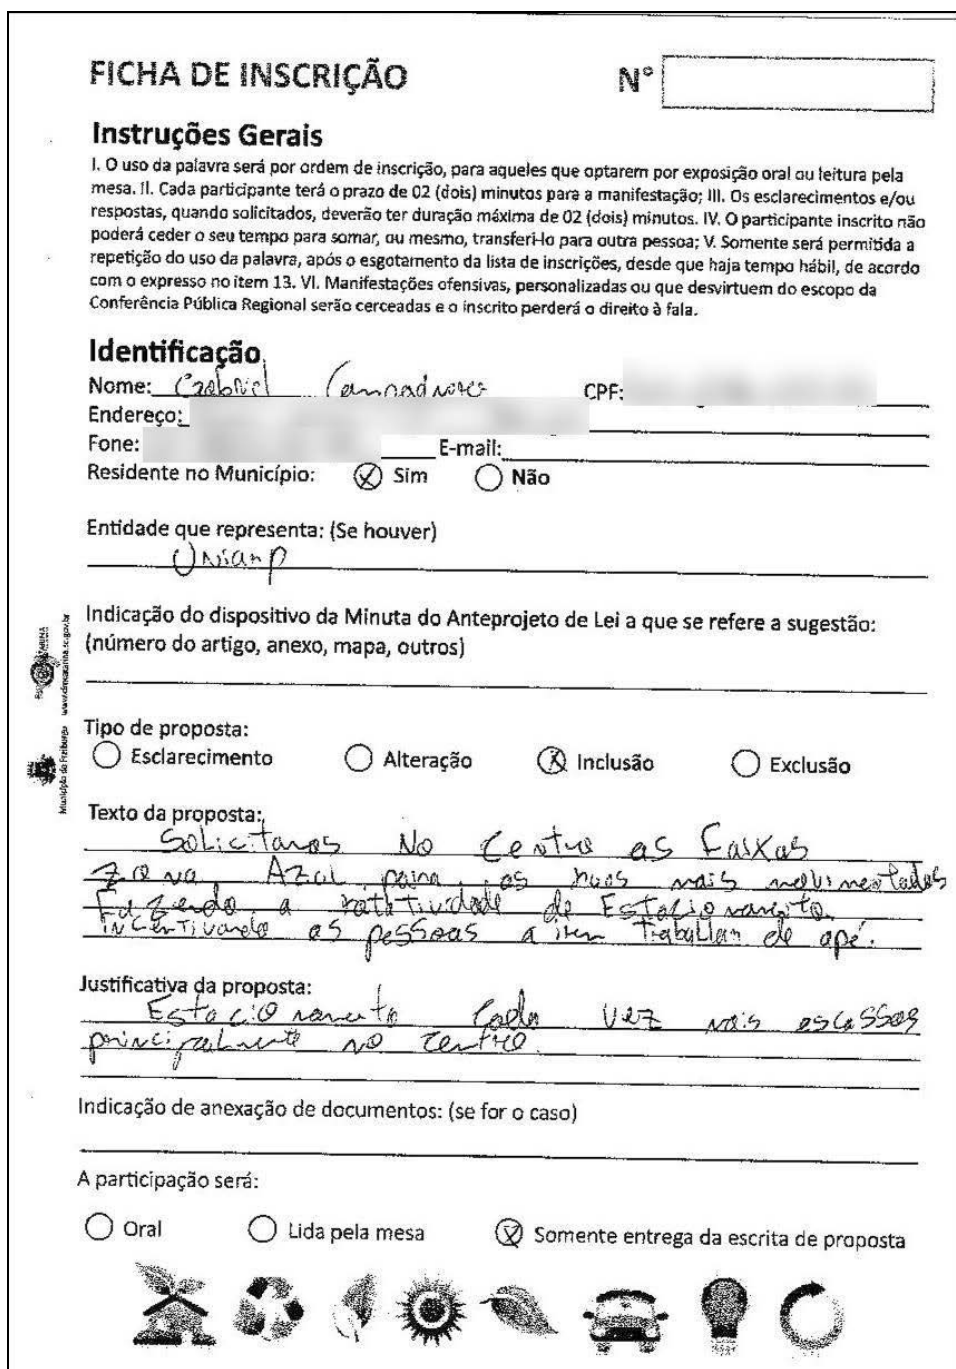 FICHA DE INSCRIÇÃO Nº
Instruções Gerais
I. O uso da palavra será por ordem de inscrição, para aqueles que optarem por exposição oral ou leitura pela
mesa. II. Cada participante terá o prazo de 02 (dois) minutos para a manifestação; III. Os esclarecimentos e/ou
respostas, quando solicitados, deverão ter duração máxima de 02 (dois) minutos. IV. O participante inscrito não
poderá ceder o seu tempo para somar, ou mesmo, transferi-lo para outra pessoa; V. Somente será permitida a
repetição do uso da palavra, após o esgotamento da lista de inscrições, desde que haja tempo hábil, de acordo
com o expresso no item 13. VI. Manifestações ofensivas, personalizadas ou que desvirtuem do escopo da
Conferência Pública Regional serão cerceadas e o inscrito perderá o direito à fala.
Identificação
Nome: Gabriel CPF:
Endereço:
Fone: E-mail:
Residente no Município: Sim Não
Entidade que representa: (Se houver)
Uniarp
Indicação do dispositivo da Minuta do Anteprojeto de Lei a que se refere a sugestão:
(número do artigo, anexo, mapa, outros)
Tipo de proposta:
Esclarecimento Alteração Inclusão Exclusão
Texto da proposta:
Solicitamos No Centro as Faixas
Zona Azul para as ruas mais movimentadas
Fazendo a rotatividade de Estacionamento
incentivando as pessoas a irem trabalhar de apé.
Justificativa da proposta:
Estacionamento Cada vez mais escassos
principalmente no centro
Indicação de anexação de documentos: (se for o caso)
A participação será:
Oral Lida pela mesa Somente entrega da escrita de proposta
Município de Fraiburgo